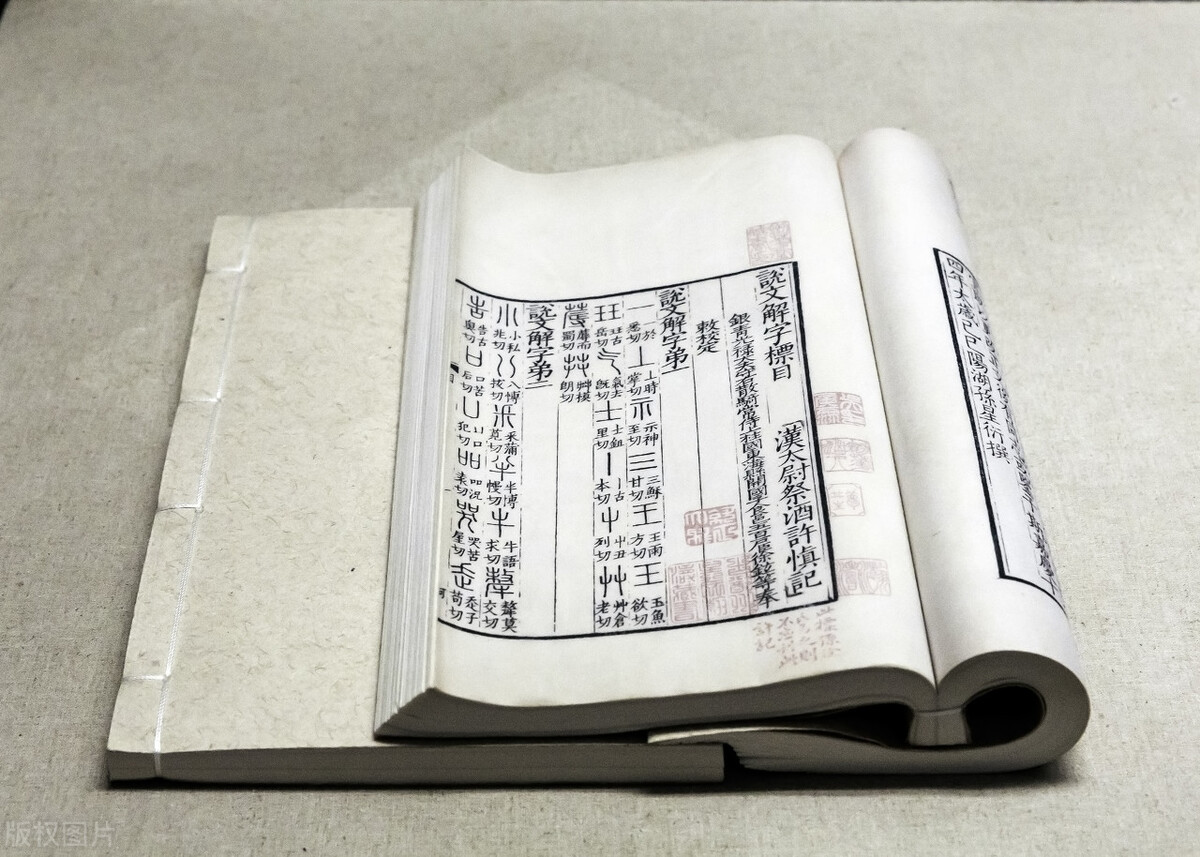 四年太歲己巳陽湖孫星衍撰
說文解字標目 漢太尉祭酒許慎記
銀青光祿大夫守右散騎常侍上柱國東海縣開國子食邑五百戶臣徐鉉等奉
敕校定
說文解字弟一
一 一於悉切 丄 丄時掌切 示 示神至切 三 三穌甘切 王 王雨方切 玉 玉魚欲切
玨 玨古岳切 气 气去既切 士 士鉏里切 丨 丨古本切 屮 屮丑列切 艸 艸倉老切
蓐 蓐而蜀切 茻 茻模朗切
說文解字弟二
小 小私兆切 八 八博拔切 釆 釆蒲莧切 半 半博幔切 牛 牛語求切 犛 犛莫交切
告 告古奧切 口 口苦后切 凵 凵口犯切 吅 吅況袁切 哭 哭苦屋切 走 走子苟切
版权图片